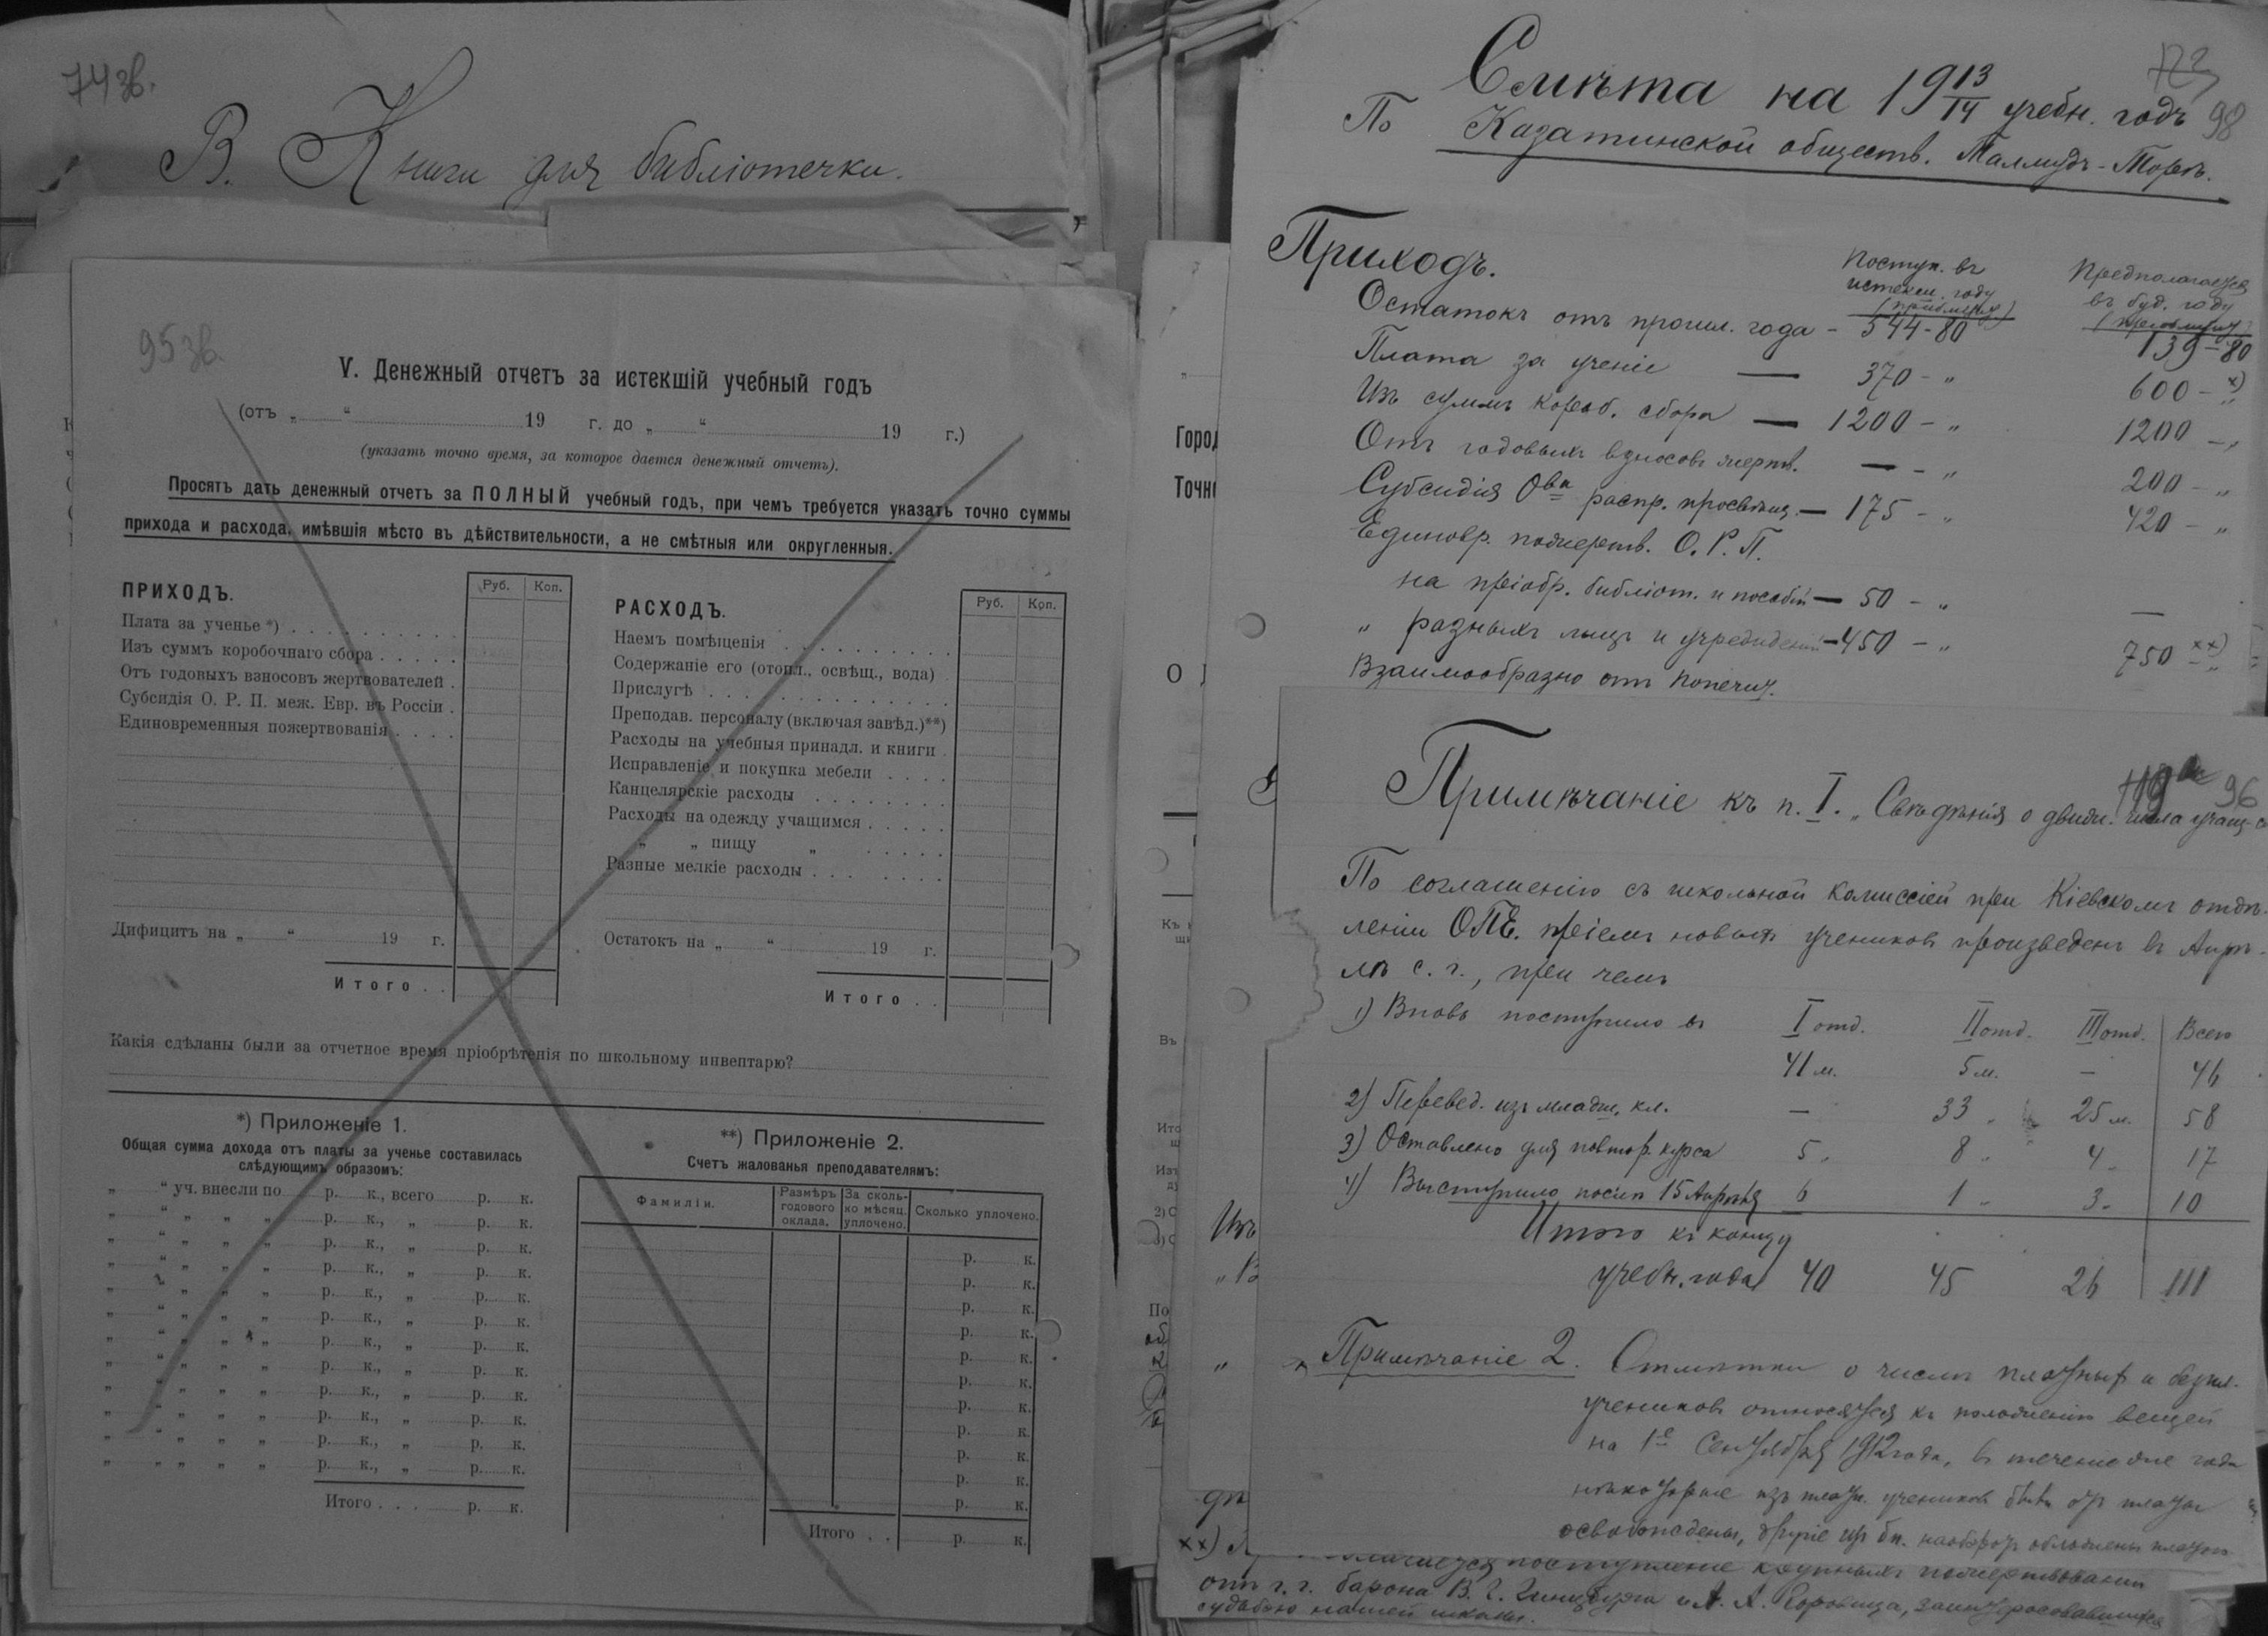 74 зв.
В. Книги для библіотечки.
95 зв.
V. Денежный отчетъ за истекшій учебный годъ
(отъ „ “ 19 г. до „ “ 19 г.)
(указать точно время, за которое дается денежный отчетъ).
Просятъ дать денежный отчетъ за ПОЛНЫЙ учебный годъ, при чемъ требуется указать точно суммы
прихода и расхода, имѣвшія мѣсто въ дѣйствительности, а не смѣтныя или округленныя.
ПРИХОДЪ.
Руб. Коп.
Плата за ученье *)
Изъ суммъ коробочнаго сбора
Отъ годовыхъ взносовъ жертвователей
Субсидія О. Р. П. меж. Евр. въ Россіи
Единовременныя пожертвованія
Дифицитъ на „ “ 19 г.
Итого . .
РАСХОДЪ.
Руб. Коп.
Наемъ помѣщенія
Содержаніе его (отопл., освѣщ., вода)
Прислугѣ
Преподав. персоналу (включая завѣд.)**)
Расходы на учебныя принадл. и книги
Исправленіе и покупка мебели
Канцелярскіе расходы
Расходы на одежду учащимся
„ „ пищу „
Разные мелкіе расходы
Остатокъ на „ “ 19 г.
Итого . .
Какія сдѣланы были за отчетное время пріобрѣтенія по школьному инвентарю?
*) Приложеніе 1.
Общая сумма дохода отъ платы за ученье составилась
слѣдующимъ образомъ:
„ “ уч. внесли по р. к., всего р. к.
„ “ „ „ „ р. к., „ р. к.
„ “ „ „ „ р. к., „ р. к.
„ “ „ „ „ р. к., „ р. к.
„ “ „ „ „ р. к., „ р. к.
„ “ „ „ „ р. к., „ р. к.
„ “ „ „ „ р. к., „ р. к.
„ “ „ „ „ р. к., „ р. к.
„ “ „ „ „ р. к., „ р. к.
„ “ „ „ „ р. к., „ р. к.
„ “ „ „ „ р. к., „ р. к.
„ “ „ „ „ р. к., „ р. к.
Итого . . . р. к.
**) Приложеніе 2.
Счетъ жалованья преподавателямъ:
Фамиліи. Размѣръ годового оклада. За сколько мѣсяц. уплочено. Сколько уплочено.
р. к.
р. к.
р. к.
р. к.
р. к.
р. к.
р. к.
р. к.
р. к.
р. к.
р. к.
Итого . . р. к.
98
Смѣта на 19 13/14 учебн. годъ
По Казатинской обществ. Талмудъ-Торѣ.
Приходъ.
Поступ. въ истекш. году
Предполагается въ буд. году
Остатокъ отъ прошл. года - 544-80 139-80
Плата за ученіе — 370 - „ 600 - „ x)
Изъ суммъ короб. сбора — 1200 - „ 1200 - „
Отъ годовыхъ взносовъ жертв. — - „ 200 - „
Субсидія Ова распр. просвѣщ. — 175 - „ 420 - „
Единовр. пожертв. О. Р. П.
на пріобр. библіот. и пособій — 50 - „ —
„ разныхъ лицъ и учрежденій - 450 - „ 750 - „ xx)
Взаимообразно отъ попечит.
Город
Точн
96
Примѣчаніе къ п. I. „Свѣдѣнія о движ. числа учащ-ся
По соглашенію съ школьной комиссіей при Кіевскомъ отдѣ-
леніи ОПЕ. пріемъ новыхъ учениковъ произведенъ въ Апрѣ-
лѣ с. г., при чемъ
1) Вновь поступило въ I отд. II отд. III отд. Всего
41 м. 5 м. — 46
2) Перевед. изъ младш. кл. — 33 „ 25 м. 58
3) Оставлено для повтор. курса 5 „ 8 „ 4 „ 17
4) Выступило послѣ 15 Апрѣля 6 1 „ 3 „ 10
Итого къ концу
учебн. года 40 45 26 111
Примѣчаніе 2. Отмѣтки о числѣ платныхъ и безпл.
учениковъ относятся къ положенію вещей
на 1е Сентября 1912 года, въ теченіе же года
нѣкоторые изъ платн. учениковъ были отъ платы
освобождены, другіе изъ бп. наоборотъ обложены платой
Изъ
xx)
поступленіе крупныхъ пожертвованій
отъ г. г. барона В. Г. Гинцбурга и А. А. Горовица, заинтересовавшихся
судьбою нашей школы.